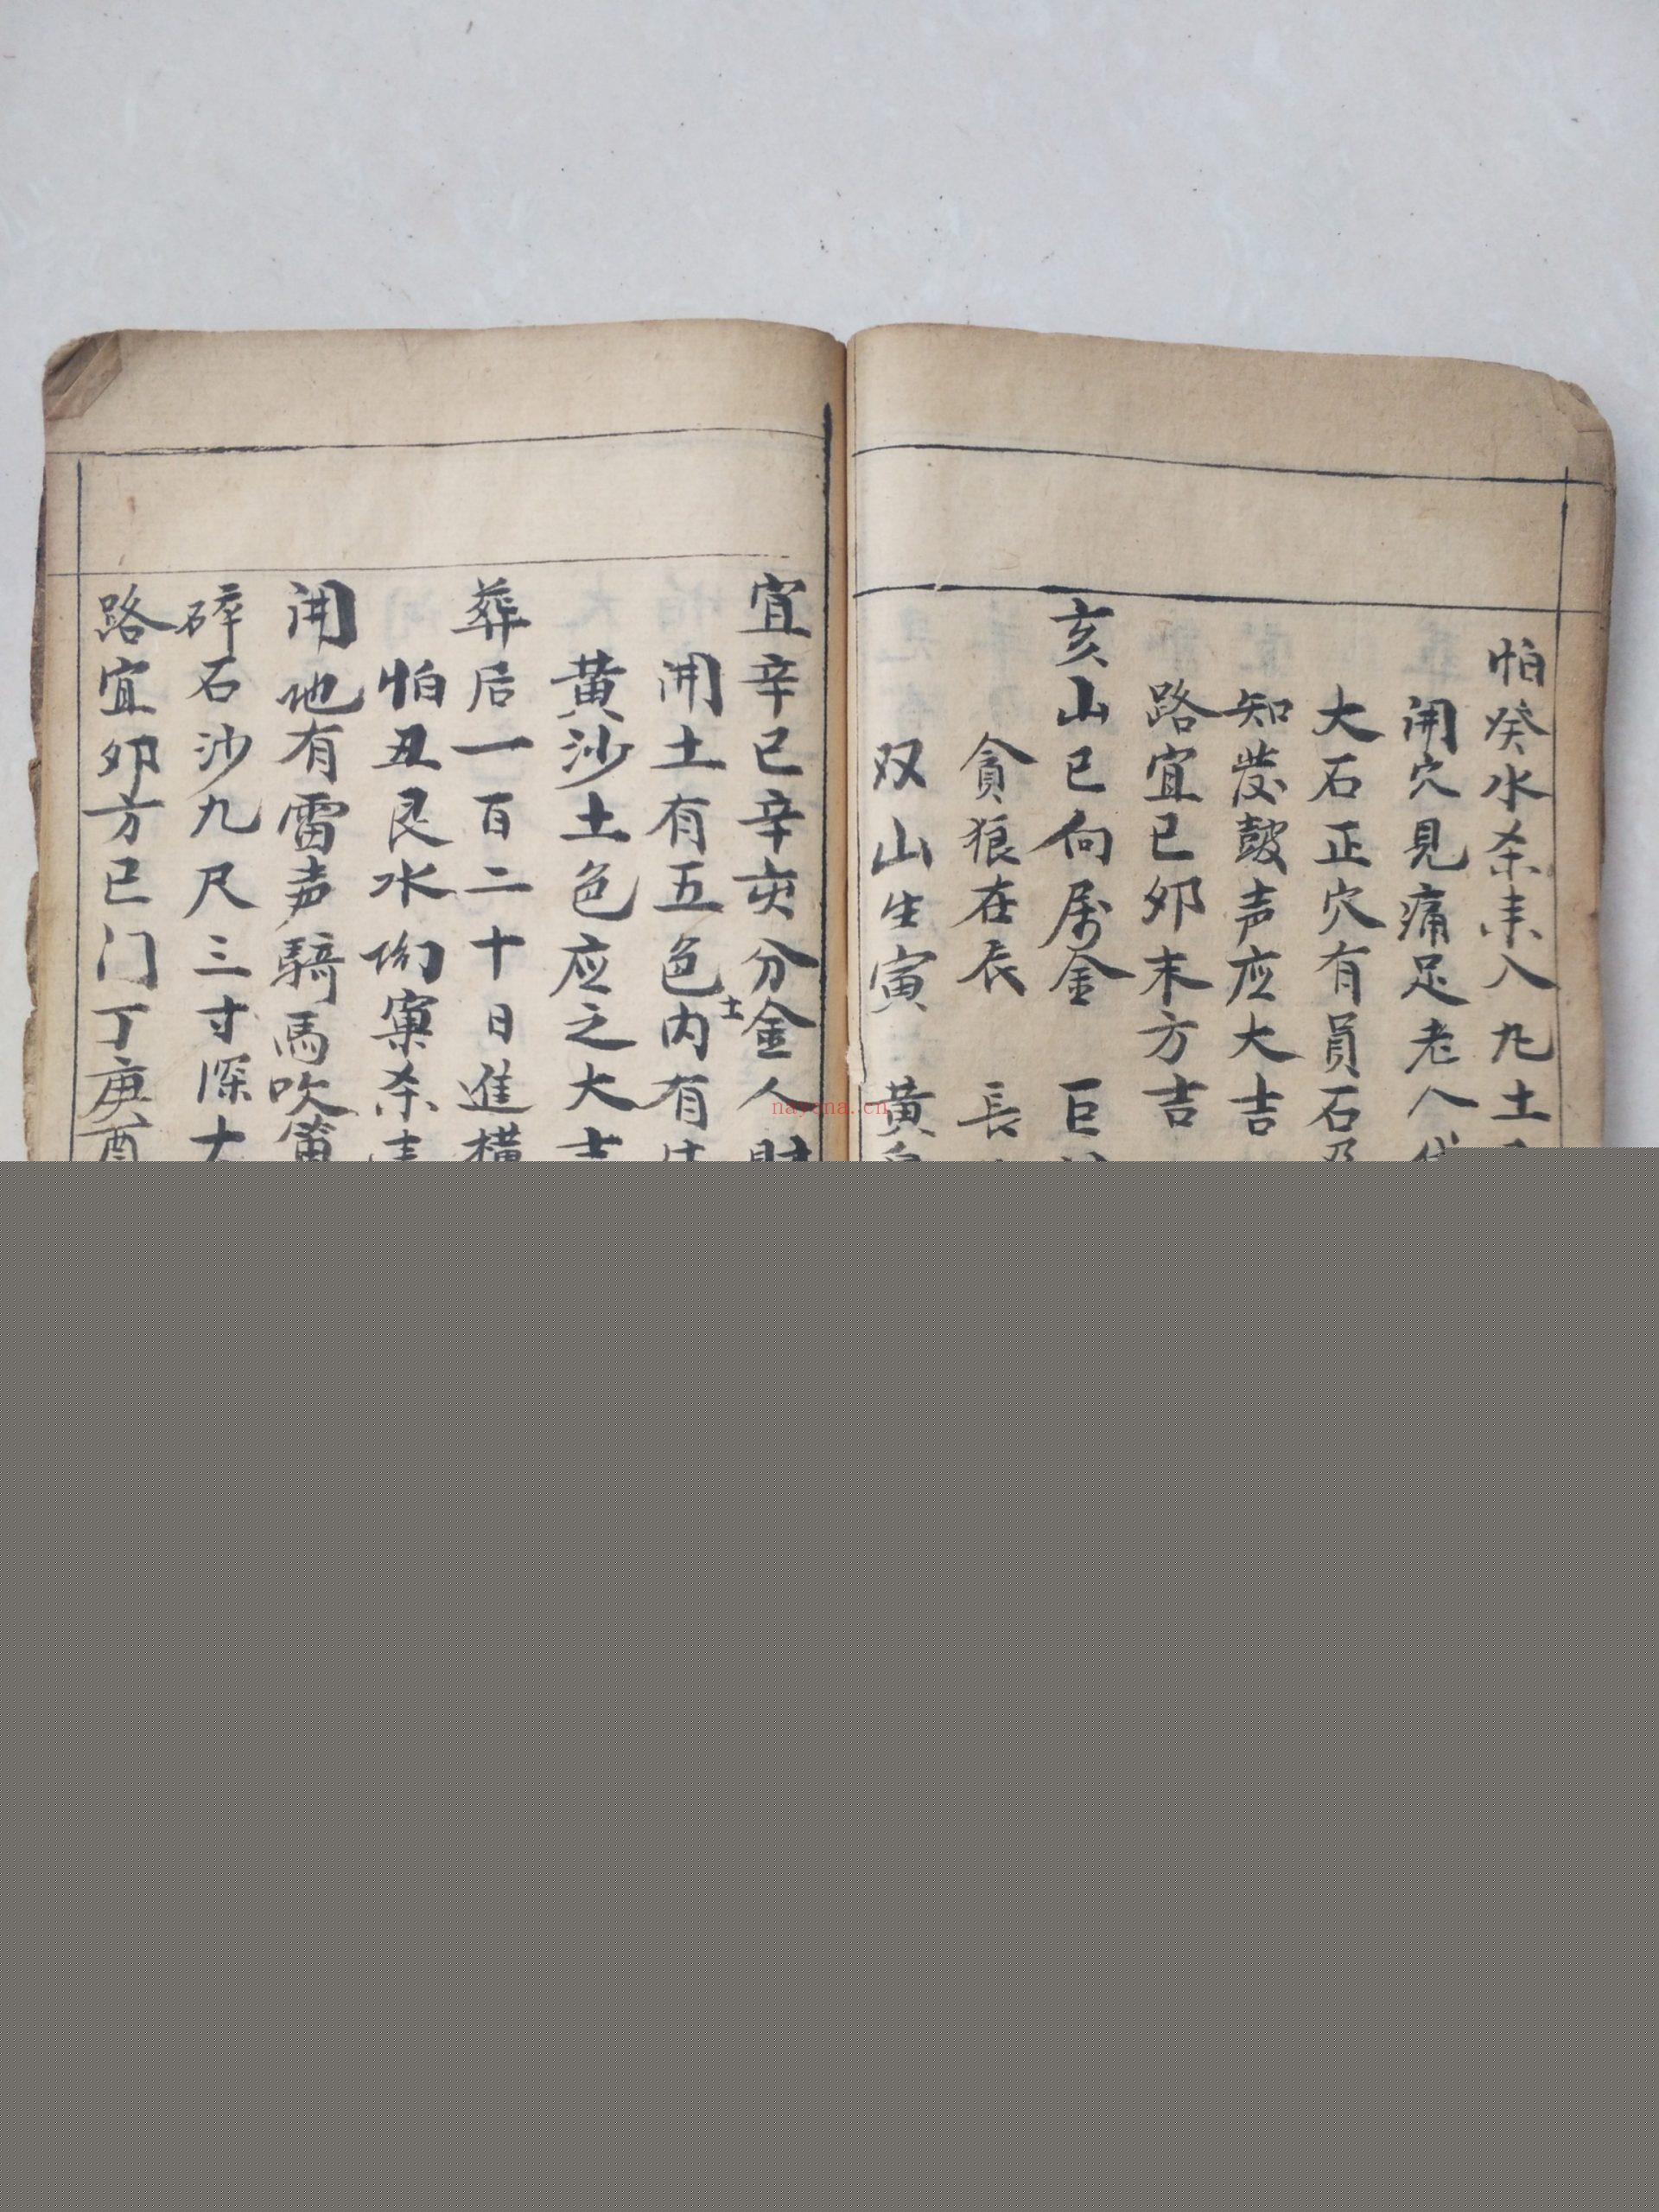 怕癸水杀耒入九土
開穴見痛足老人
大石正穴有員石
知發鼓声应大吉
路宜巳卯未方吉
亥山巳向属金 巨
貪狼在辰 長
双山生寅 黄
宜辛巳辛亥分金人財
開土有五色土内有
黄沙土色应之大吉
葬后一百二十日進横
怕丑艮水 杀
開地有雷声騎馬吹笛
碎石沙九尺三寸深大
路宜卯方巳门丁庚酉
nayona.cn